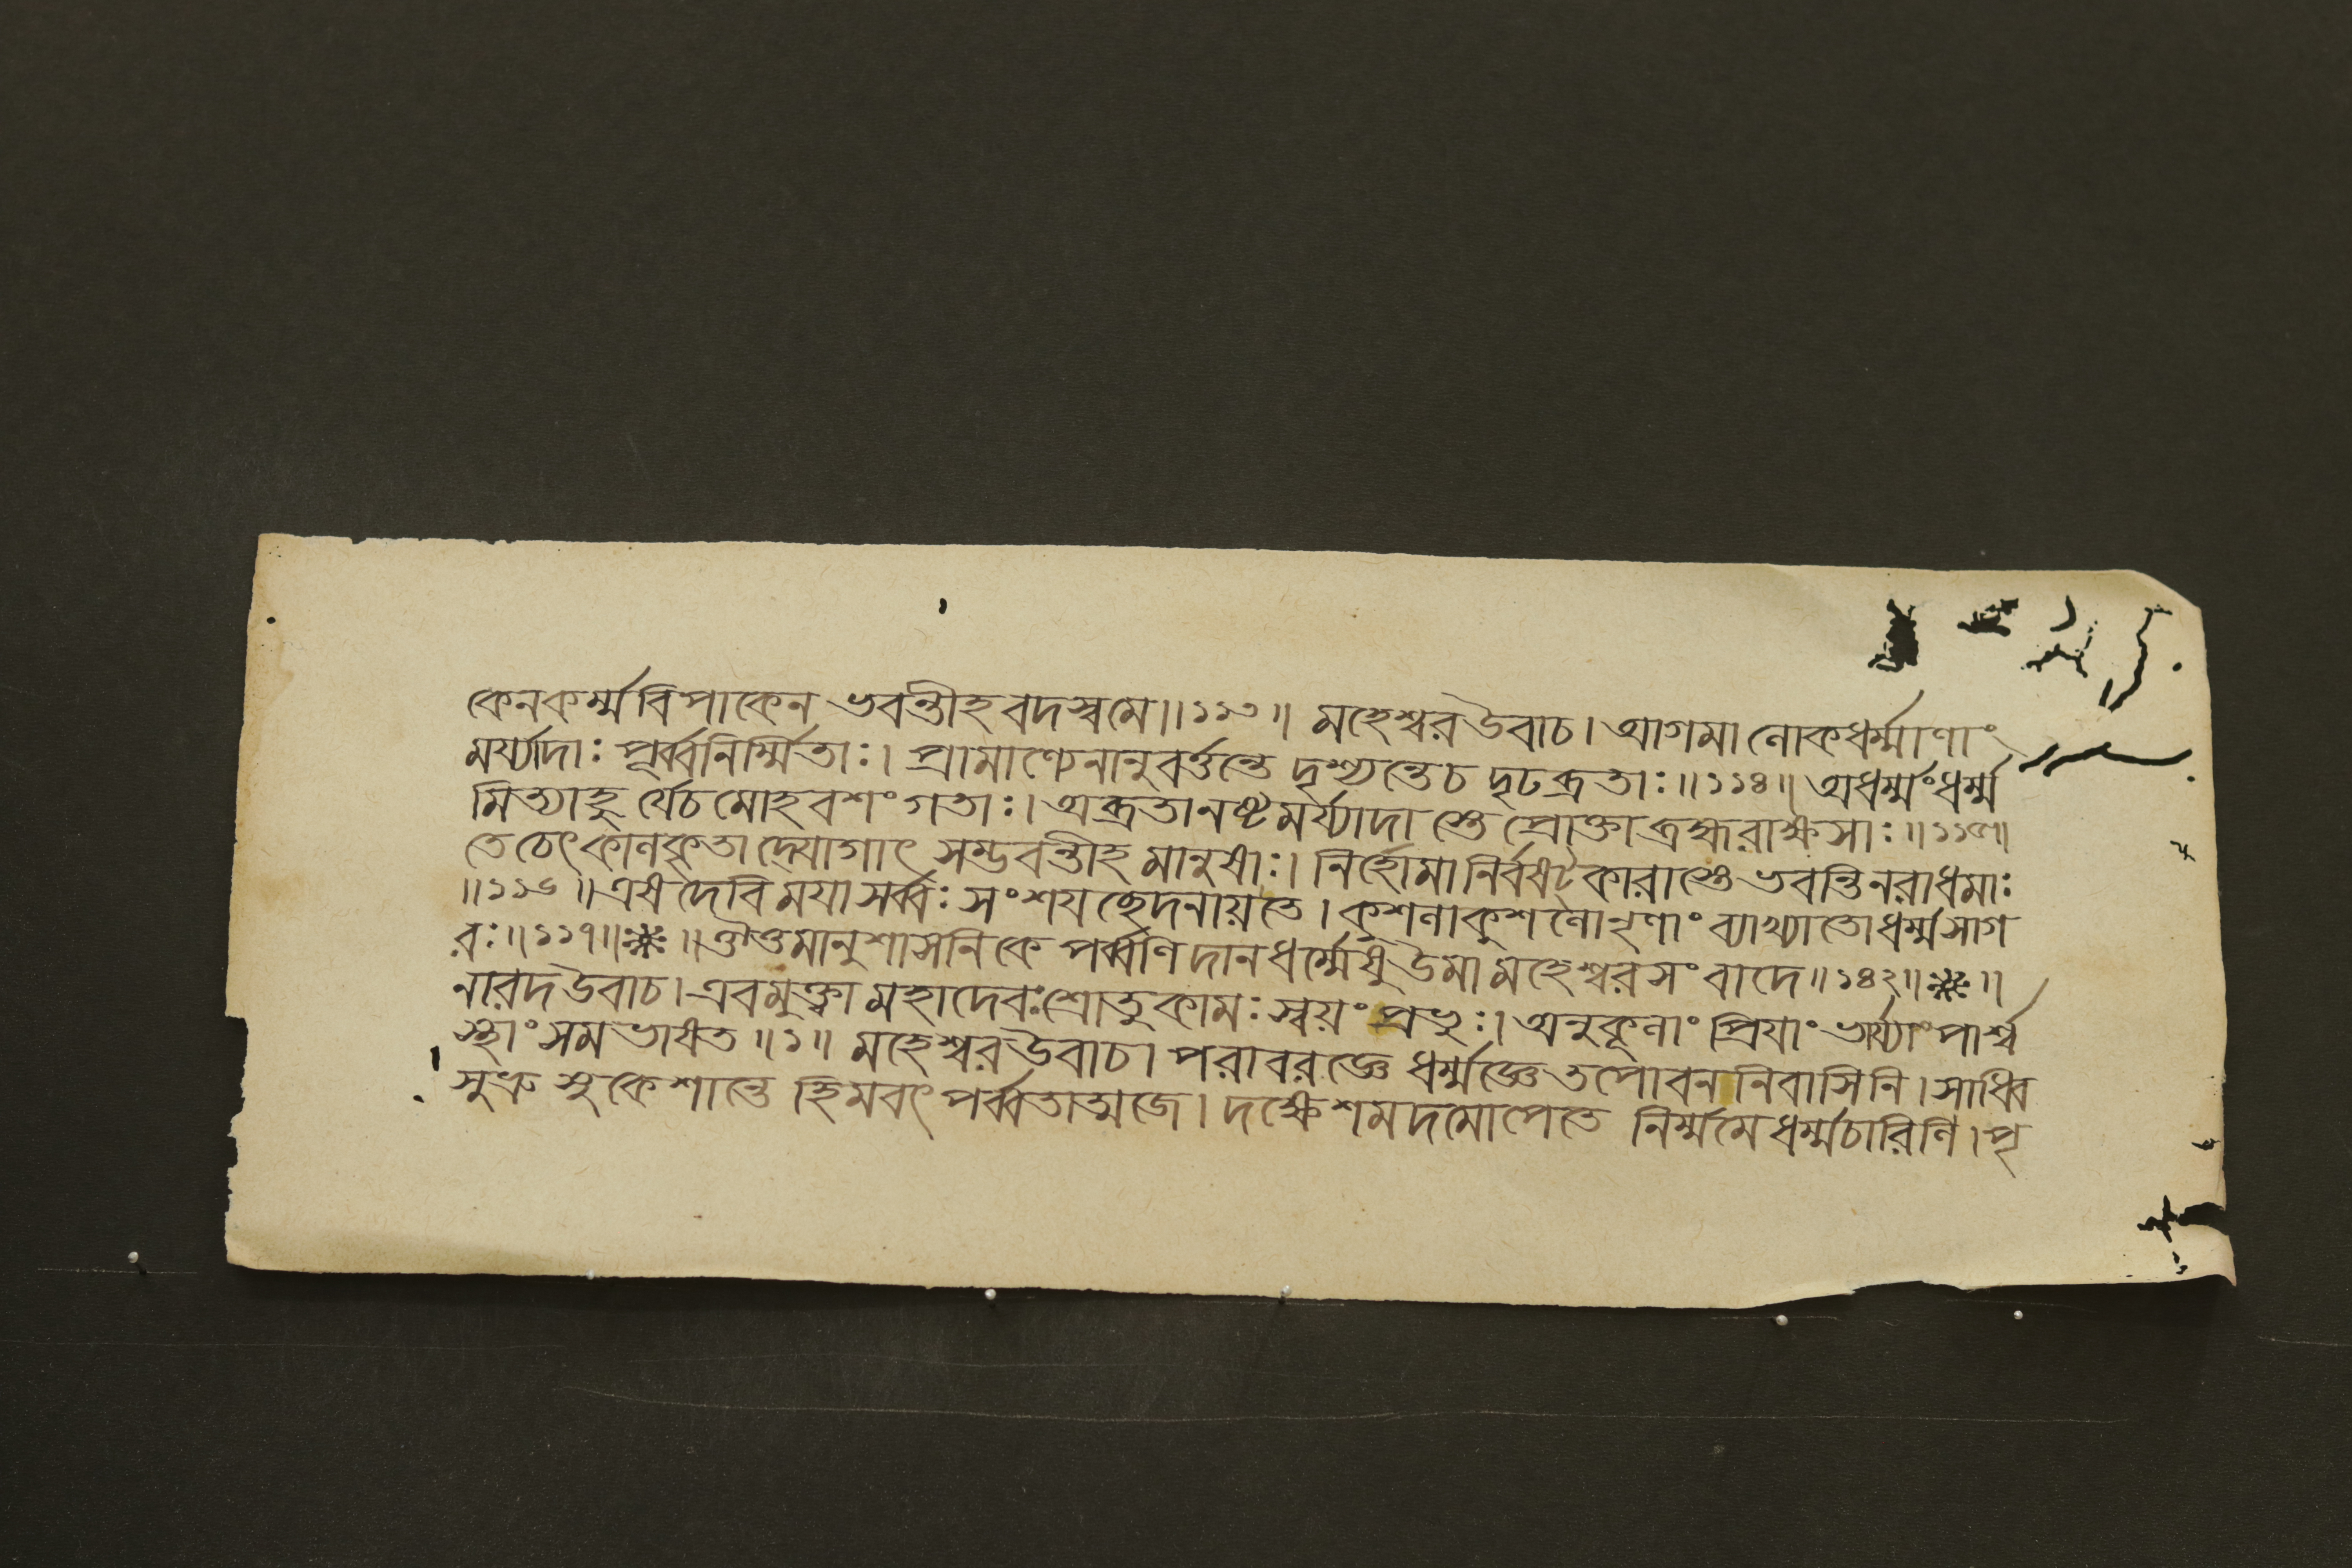 কেনকর্ম্মবিপাকেন ভবন্তীহবদস্বমে॥১১৩॥ মহেশ্বরউবাচ। আগমানোকধর্ম্মাণাং
মর্য্যাদাঃ পূর্ব্বনির্ম্মিতাঃ। প্রামাণ্যেনানুবর্ত্তন্তে দৃশ্যন্তেচ দৃঢব্রতাঃ॥১১৪॥ অধর্ম্মংধর্ম্ম
মিত্যাহুর্যেচমোহবশং গতাঃ। অব্রতানষ্টমর্য্যাদাস্তে প্রোক্তাব্রহ্মরাক্ষসাঃ॥১১৫॥
তেচেৎকানকৃতাদ্যোগাৎ সম্ভবন্তীহ মানুষাঃ। নির্হোমানির্বষট্কারাস্তেভবন্তিনরাধমাঃ
॥১১৬॥এষদেবি ময়াসর্ব্বঃ সংশযছেদনায়তে। কুশনাকুশনোনৃণাং ব্যাখ্যাতোধর্ম্মসাগ
রঃ॥১১৭॥※॥ঔওমানুশাসনিকে পর্ব্বণিদানধর্ম্মেষুউমামহেশ্বরসংবাদে॥১৪২॥※॥
নারদউবাচ। এবমুক্ত্বা মহাদেবঃশ্রোতুকামঃস্বয়ংপ্রভুঃ। অনুকূনাং প্রিযাং ভার্য্যাংপার্শ্ব
স্থাংসমভাষত॥১॥ মহেশ্বরউবাচ। পরাবরজ্ঞে ধর্ম্মজ্ঞেতপোবননিবাসিনি। সাধ্বি
সুভ্রু সুকেশান্তে হিমবৎপর্ব্বতাত্মজে। দক্ষেশমদমোপেতে নির্ম্মমেধর্ম্মচারিণি। পৃ